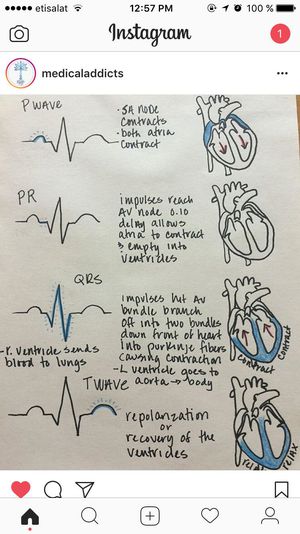 etisalat
12:57 PM
100 %
Instagram
1
medicaladdicts
P WAVE
· SA NODE
contracts
· both atria
contract
PR
impulses reach
AV node 0.10
delay allows
atria to contract
& empty into
ventricles
QRS
impulses hit AV
bundle branch
off into two bundles
down front of heart
into purkinje fibers
causing contraction
- r. ventricle sends
blood to lungs
- L ventricle goes to
aorta → body
contract
contract
T WAVE
repolarization
or
recovery of the
ventricles
relax
relax